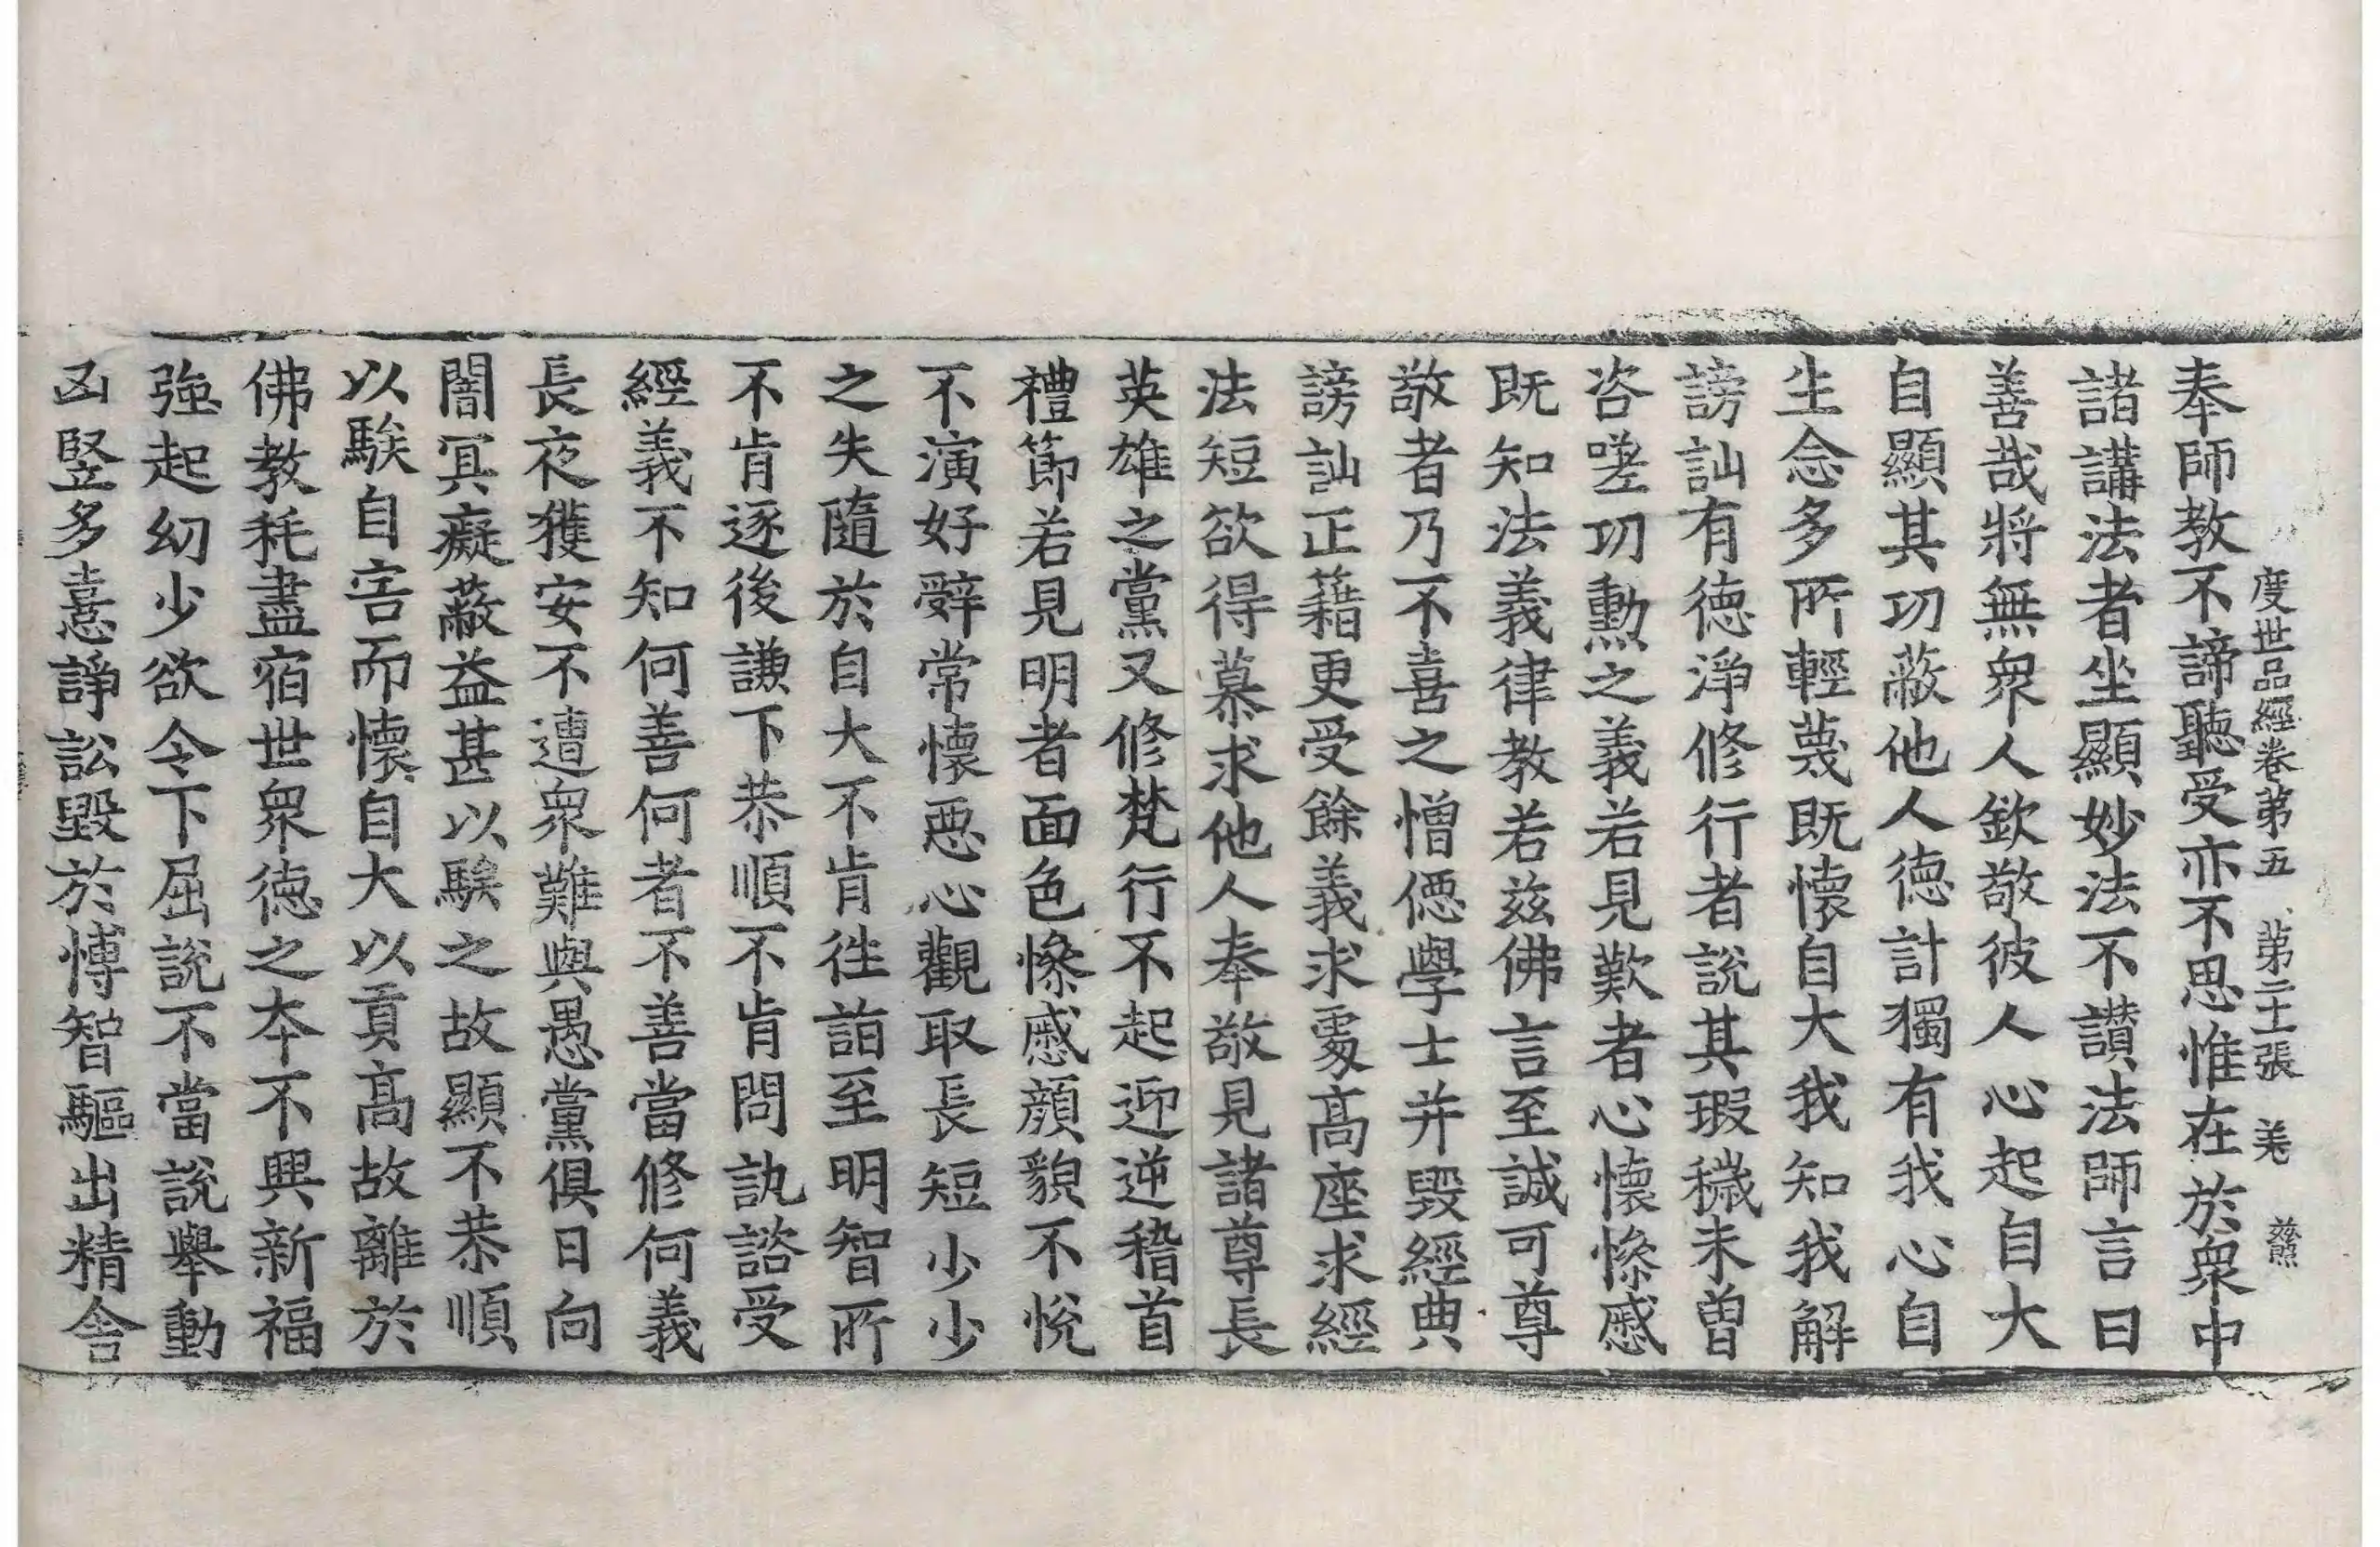 度世品經卷第五 第二十張 羙
奉師教不諦聽受亦不思惟在於衆中
諸講法者坐顯妙法不讃法師言曰
善哉將無衆人欽敬彼人心起自大
自顯其功蔽他人德計獨有我心自
生念多所輕蔑既懷自大我知我解
謗訕有德淨修行者說其瑕穢未曽
咨嗟功勲之義若見歎者心懷慘慼
既知法義律教若兹佛言至誠可尊
敬者乃不喜之憎學士并毀經典
謗訕正籍更受餘義求處髙座求經
法短欲得慕求他人奉敬見諸尊長
英雄之黨又修梵行不起迎逆稽首
禮節若見明者面色慘慼顔貌不悅
不演好辭常懷惡心觀取長短少少
之失隨於自大不肯往詣至明智所
不肯逐後謙下恭順不肯問訓諮受
經義不知何善何者不善當修何義
長夜獲安不遭衆難與愚黨俱日向
闇冥癡蔽益甚以騃之故顯不恭順
以騃自害而懷自大以貢髙故離於
佛教耗盡宿世衆德之本不興新福
強起幼少欲令下屈說不當說舉動
凶豎多憙諍訟毀於博智驅出精舍